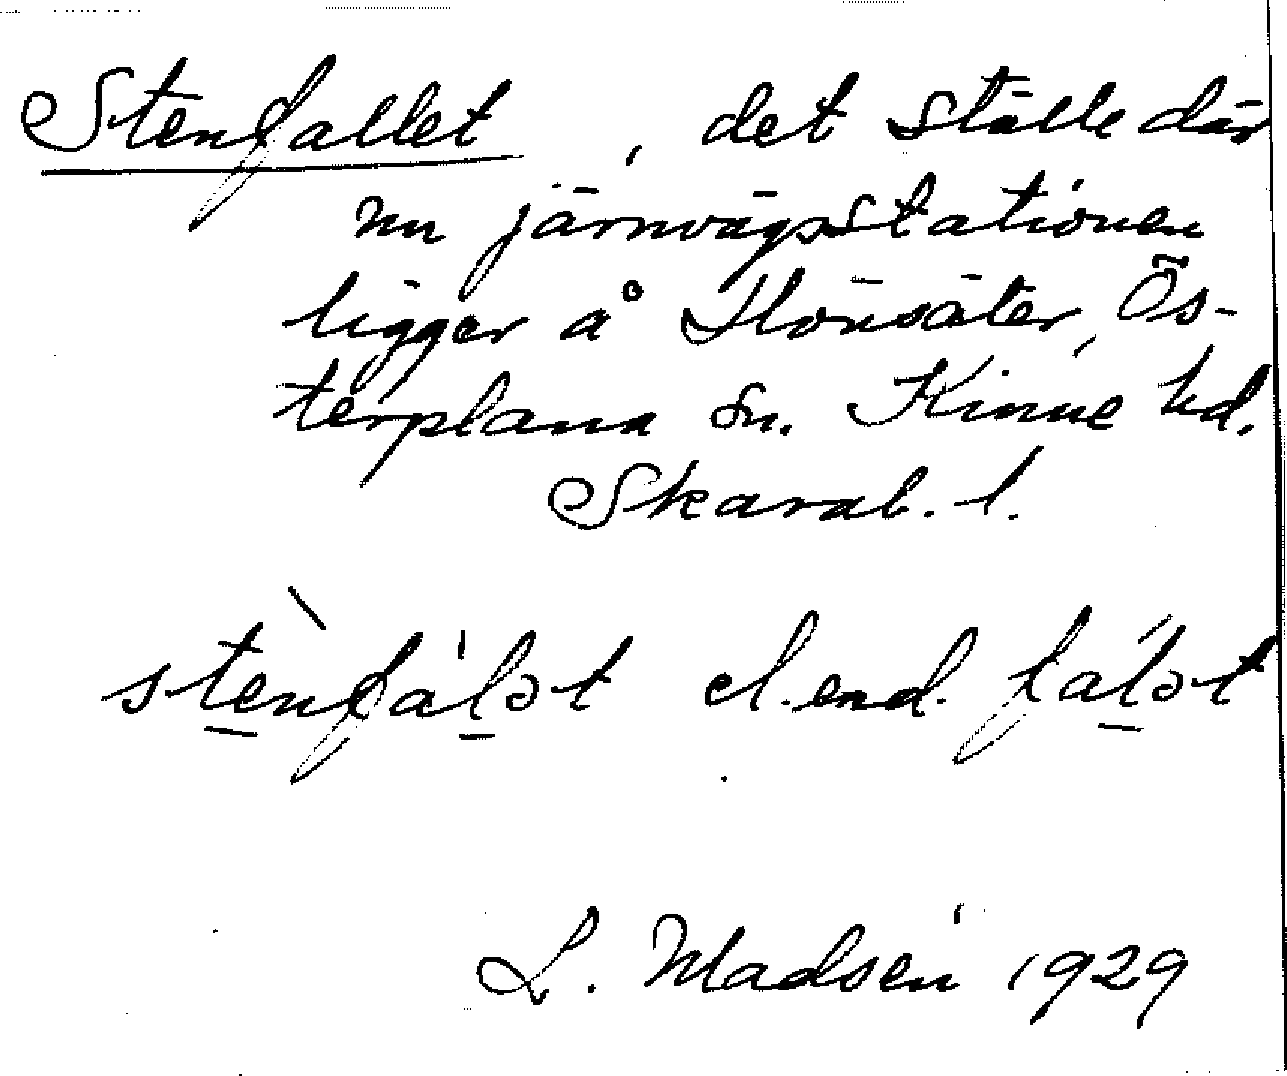 Stenfallet, det ställe där
nu järnvägsstationen
ligger å Hönsäter, Ös-
terplana sn. Kinne hd.
Skarab. l.
stènfàlət el. end. fálət
L. Madsén 1929